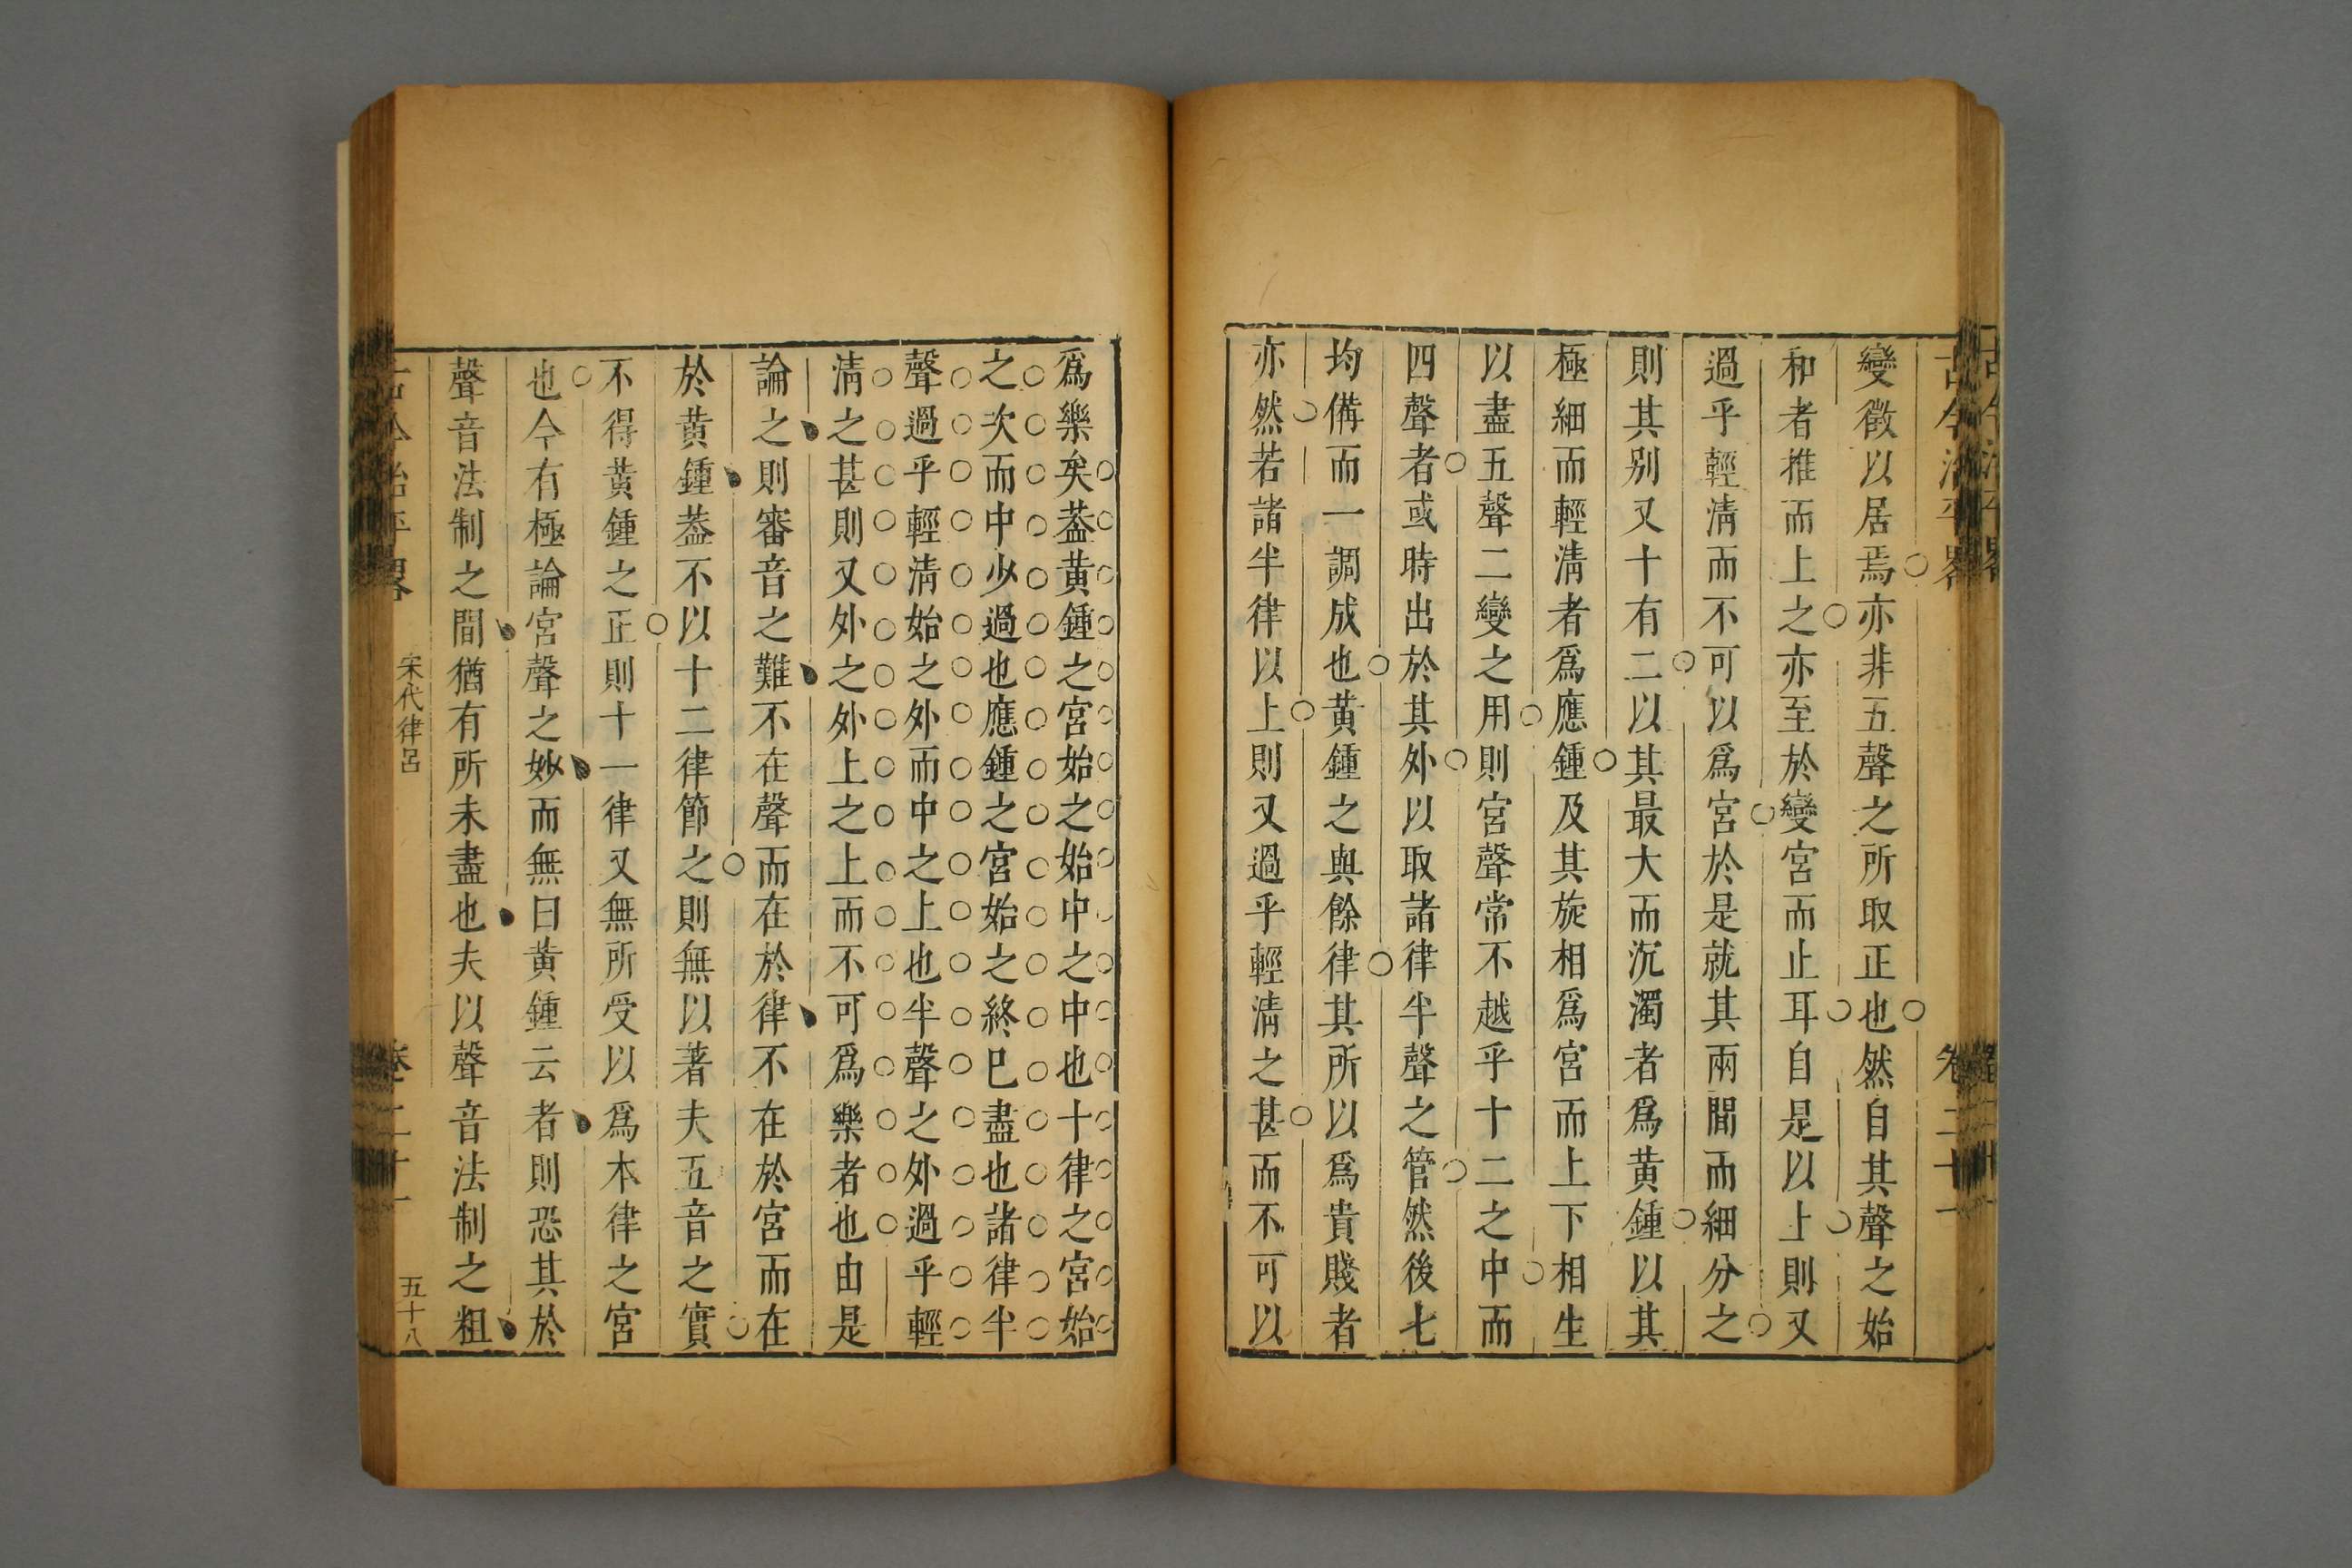 變徵以居焉亦非五聲之所取正也然自其聲之始
和者推而上之亦至於變宮而止耳自是以上則又
過乎輕淸而不可以爲宮於是就其兩間而細分之
則其别又十有二以其最大而沉濁者爲黃鍾以其
極細而輕淸者爲應鍾及其旋相爲宮而上下相生
以盡五聲二變之用則宮聲常不越乎十二之中而
四聲者或時出於其外以取諸律半聲之管然後七
均備而一調成也黃鍾之與餘律其所以爲貴賤者
亦然若諸半律以上則又過乎輕淸之甚而不可以
爲樂矣葢黃鍾之宮始之始中之中也十律之宮始
之次而中少過也應鍾之宮始之終巳盡也諸律半
聲過乎輕淸始之外而中之上也半聲之外過乎輕
淸之甚則又外之外上之上而不可爲樂者也由是
論之則審音之難不在聲而在於律不在於宮而在
於黃鍾葢不以十二律節之則無以著夫五音之實
不得黃鍾之正則十一律又無所受以爲本律之宮
也今有極論宮聲之妙而無曰黃鍾云者則恐其於
聲音法制之間猶有所未盡也夫以聲音法制之粗
宋代律呂
五十八